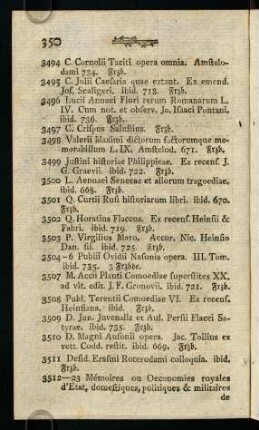 350
3494 C. Cornelii Taciti opera omnia. Amstelo-
dami 734. Frzb.
3495 C. Julii Caesaris quae extant. Ex emend.
Jos. Scaligeri. ibid. 718. Frzb.
3496 Lucii Annaei Flori rerum Romanarum L.
IV. Cum not. et observ. Jo. Isaaci Pontani.
ibid. 736. Frzb.
3497 C. Crispus Salustius. Frzb.
3498 Valerii Maximi dictorum factorumque me-
morabilium L. IX. Amstelod. 671. Frzb.
3499 Justini historiae Philippicae. Ex recens. J.
G. Graevii. ibid. 722. Frzb.
3500 L. Aennaei Senecae et aliorum tragoediae.
ibid. 668. Frzb.
3501 Q. Curtii Rufi historiarum libri. ibid. 670.
Frzb.
3502 Q. Horatius Flaccus. Ex recens. Heinsii &
Fabri. ibid. 719. Frzb.
3503 P. Virgilius Maro. Accur. Nic. Heinsio
Dan. fil. ibid. 725. Frzb.
3504-6 Publii Ovidii Nasonis opera. III. Tom.
ibid. 735. 3 Frzbde.
3507 M. Accii Plauti Comoediae superstites XX.
ad vit. edit. J. F. Gronovii. ibid. 721. Frzb.
3508 Publ. Terentii Comoediae VI. Ex recens.
Heinsiana. ibid. Frzb.
3509 D. Jun. Juvenalis et Aul. Persii Flacci Sa-
tyrae. ibid. 735. Frzb.
3510 D. Magni Ausonii opera. Jac. Tollius ex
vett. Codd. restit. ibid. 669. Frzb.
3511 Desid. Erasmi Roterodami colloquia. ibid.
Frzb.
3512-23 Mémoires ou Oeconomies royales
d'Etat, domestiques, politiques & militaires
de